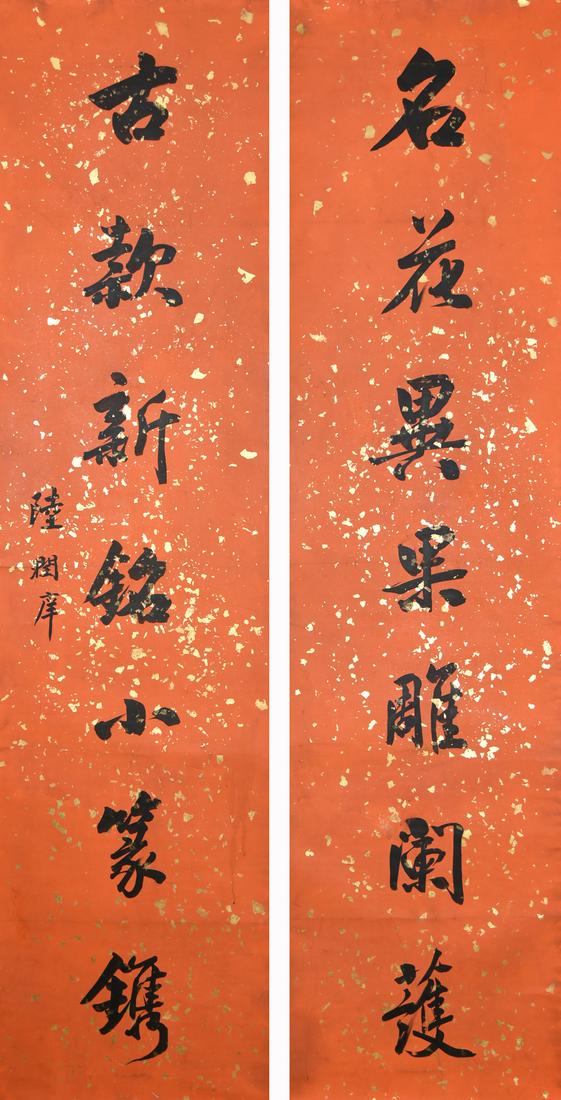 名花異采雕闌護
古款新銘小篆鐫
陸潤庠